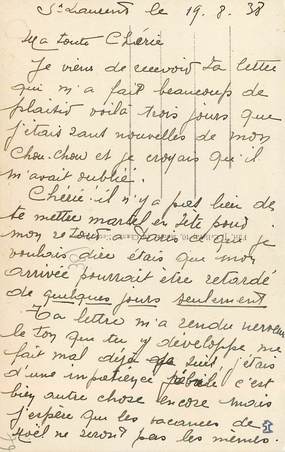 St Laurent le 19.8.38
Ma toute Chérie
Je viens de recevoir ta lettre
qui m'a fait beaucoup de
plaisir voilà trois jours que
j'étais sans nouvelles de mon
Chou-chou et je croyais qu'il
m'avait oublié.
Chérie il n'y a pas lieu de
te mettre martel en tête pour
mon retour à Paris ce que je
voulais dire étais que mon
arrivée pourrait être retardé
de quelques jours seulement
Ta lettre m'a rendu nerveux
le ton que tu y développe me
fait mal déjà seul, j'étais
d'une impatience c'est
bien autre chose encore mais
j'espère que les vacances de
Noël ne seront pas les mêmes.